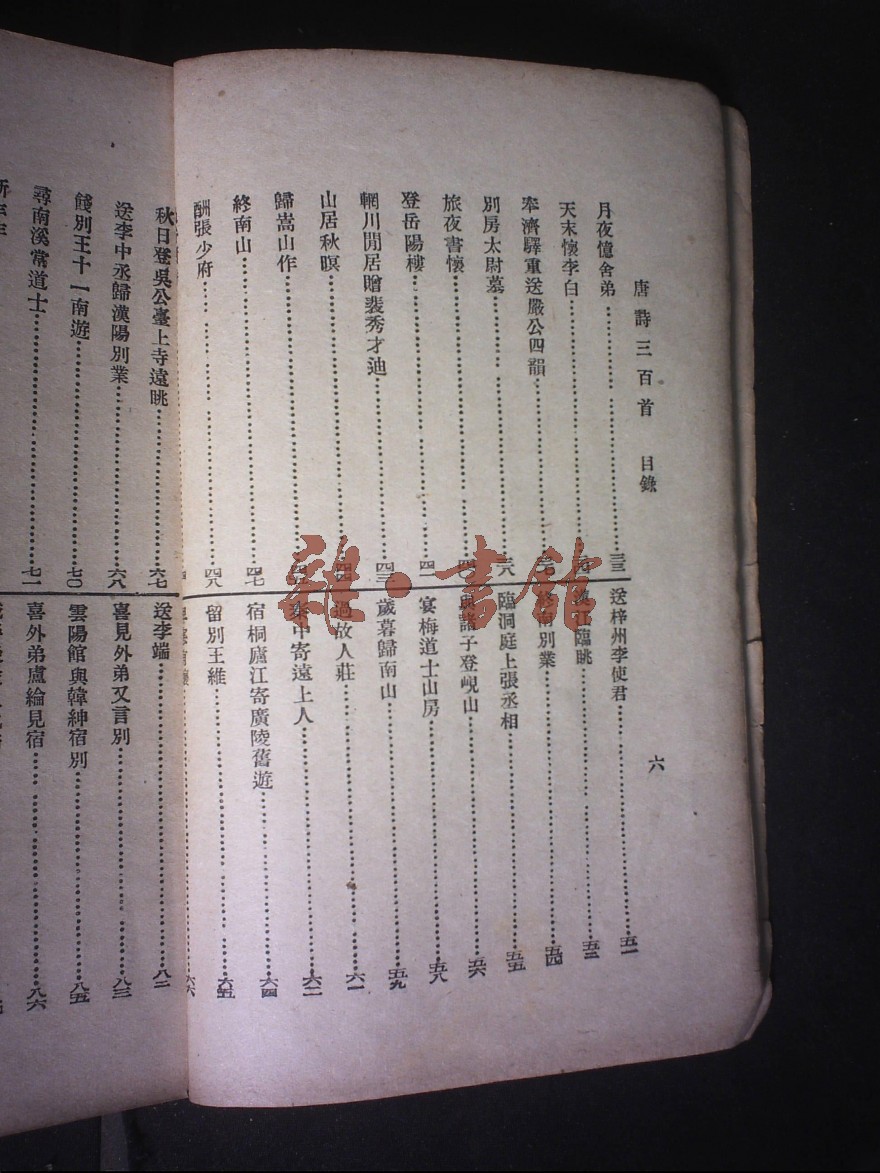 唐詩三百首 目錄
六
月夜憶舍弟 三三
天末懷李白
奉濟驛重送嚴公四韻
別房太尉墓 三八
旅夜書懷
登岳陽樓 四一
輞川閒居贈裴秀才迪 四三
山居秋暝
歸嵩山作
終南山 四七
酬張少府 四八
送梓州李使君 五一
漢江臨眺 五三
終南別業 五四
臨洞庭上張丞相 五五
與諸子登峴山 五六
宴梅道士山房 五八
歲暮歸南山 五九
過故人莊 六一
秦中寄遠上人 六二
宿桐廬江寄廣陵舊遊 六四
留別王維 六五
六六
秋日登吳公臺上寺遠眺 六七
送李中丞歸漢陽別業 六八
餞別王十一南遊 七〇
尋南溪常道士 七一
送李端 八二
喜見外弟又言別 八三
雲陽館與韓紳宿別 八五
喜外弟盧綸見宿 八六
雜·書館